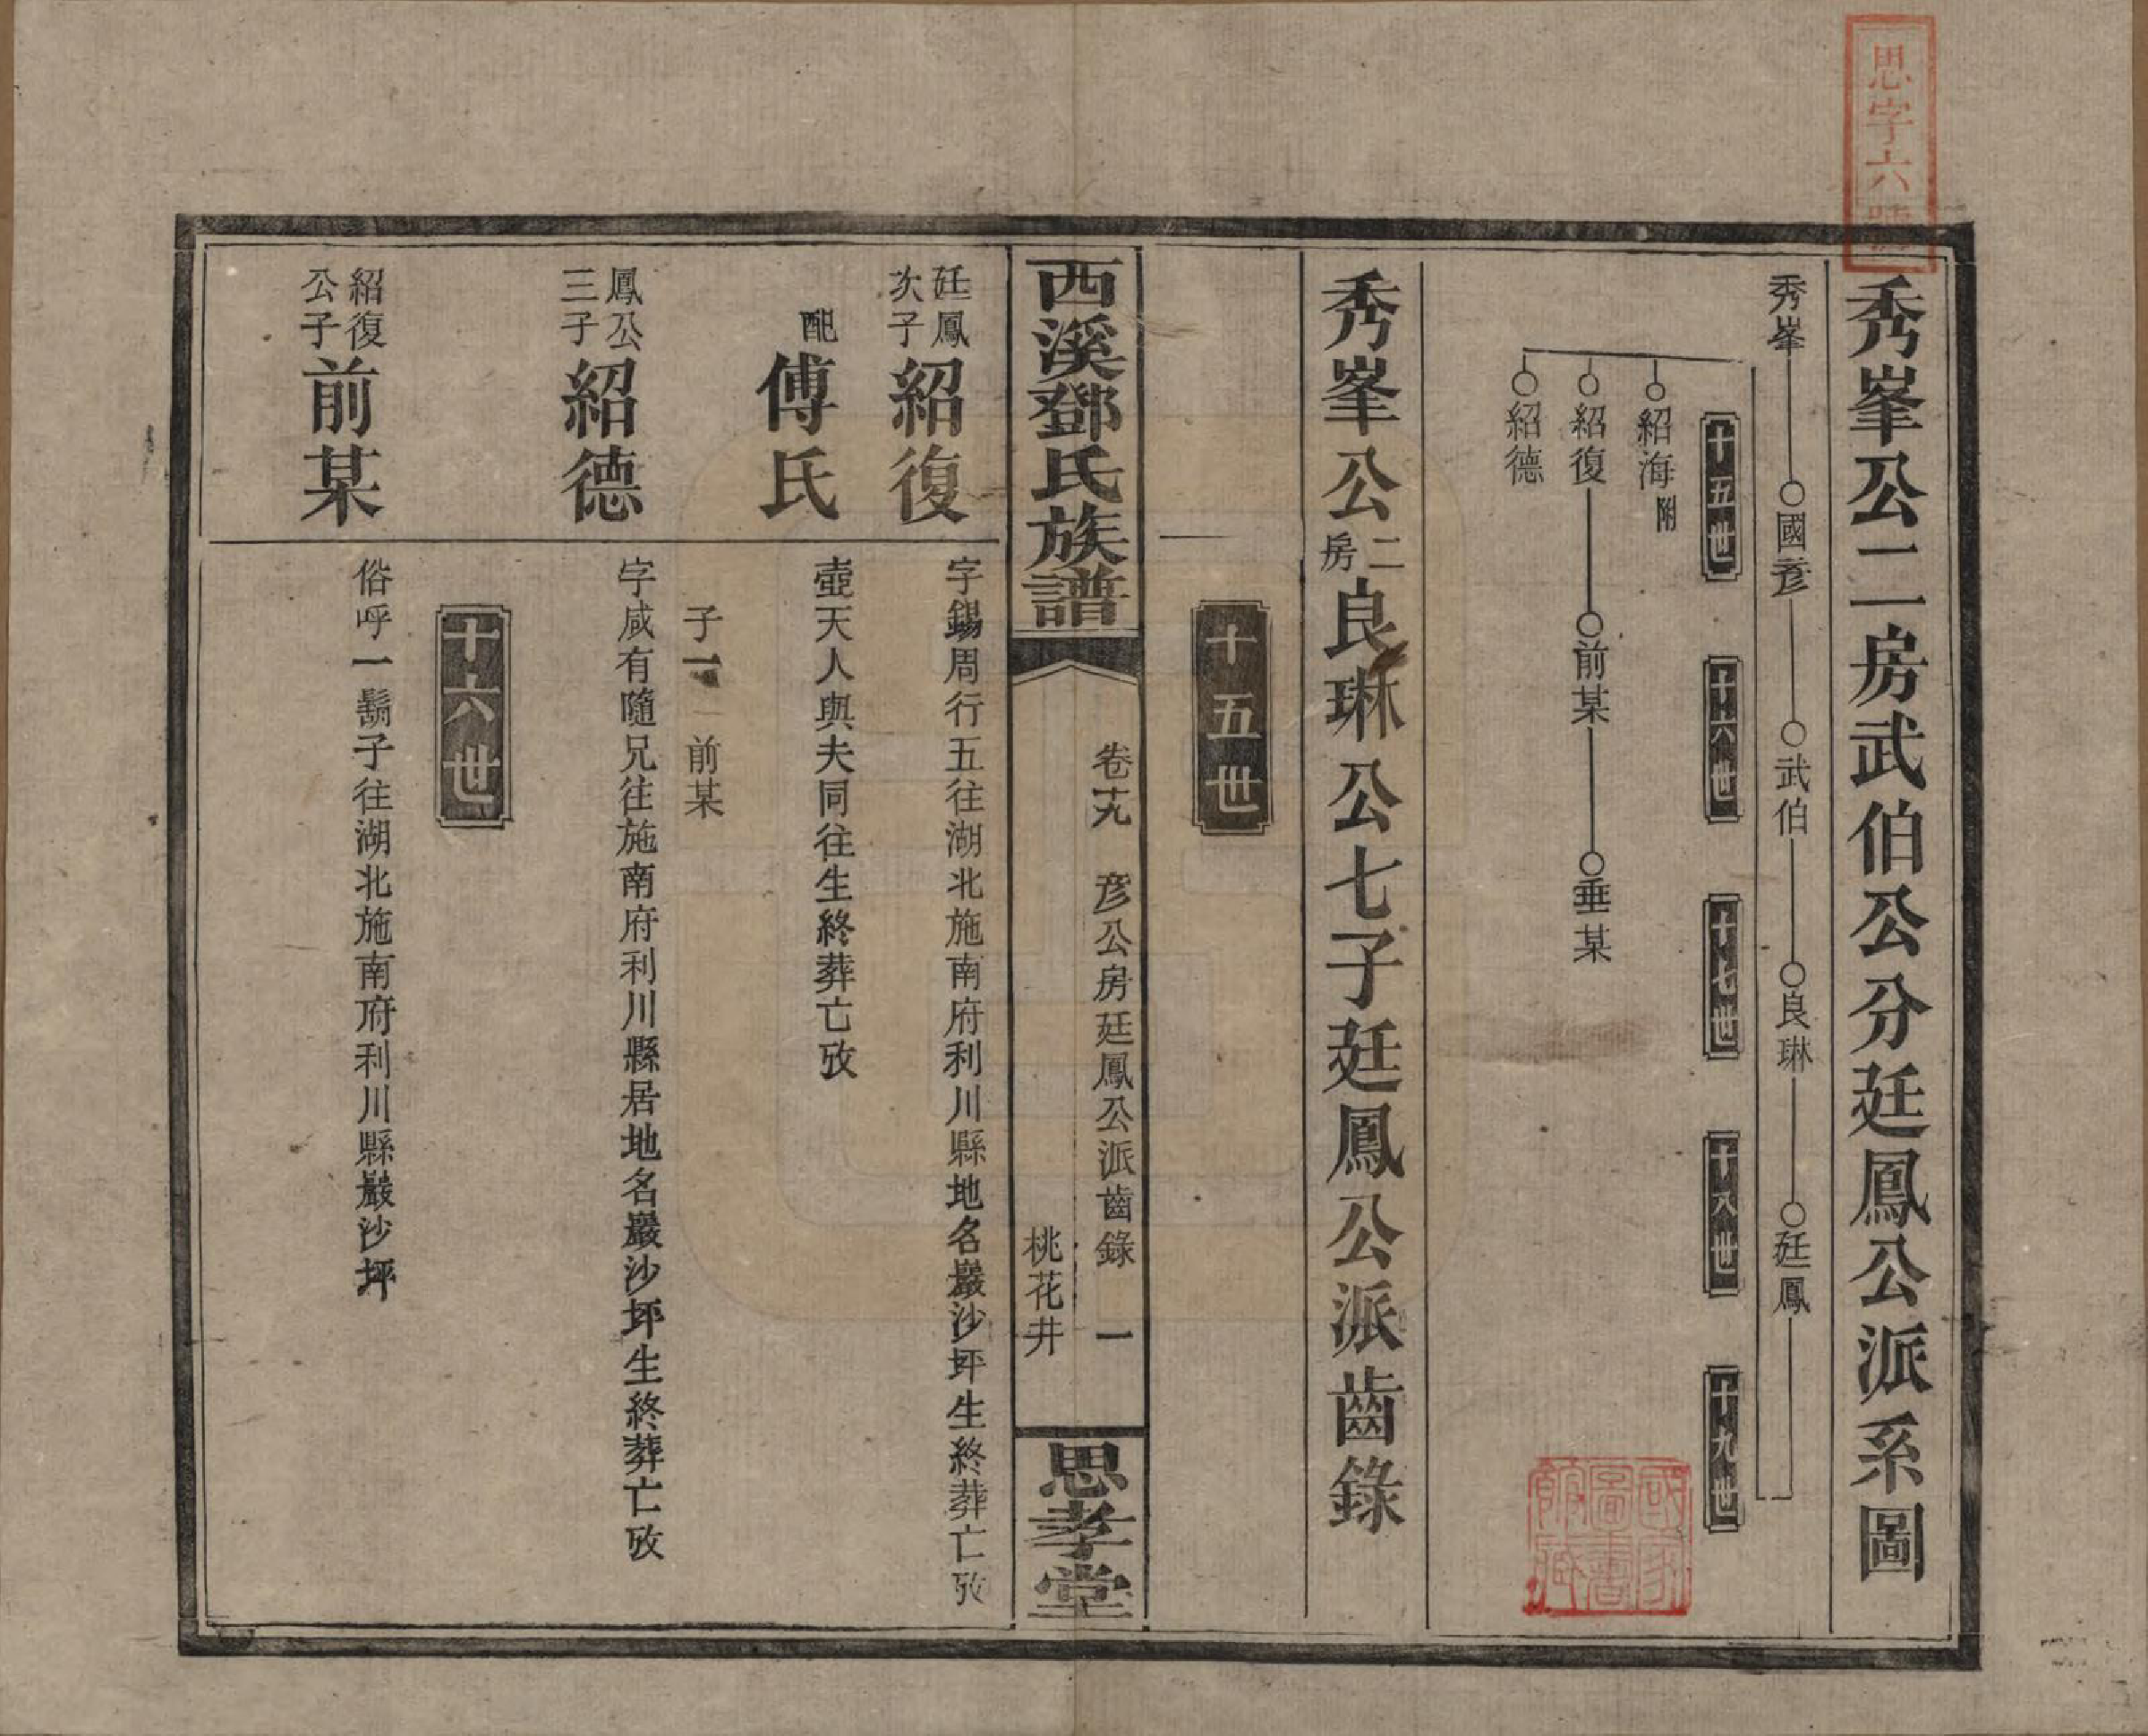 思字六號
秀峯公二房武伯公分廷鳳公派系圖
秀峯 國彥 武伯 良琳 廷鳳
十五世 十六世 十七世 十八世 十九世
紹海附
紹復 前某 垂某
紹德
國家圖書館藏
秀峯公二房良琳公七子廷鳳公派齒錄
十五世
西溪鄧氏族譜 卷十九 彥公房廷鳳公派齒錄 一
桃花井 思孝堂
廷鳳次子紹復 字錫周行五往湖北施南府利川縣地名巖沙坪生終葬亡攷
配傅氏 壼天人與夫同往生終葬亡攷
子一 前某
鳳公三子紹德 字咸有隨兄往施南府利川縣居地名巖沙坪生終葬亡攷
十六世
紹復公子前某 俗呼一鬍子往湖北施南府利川縣巖沙坪